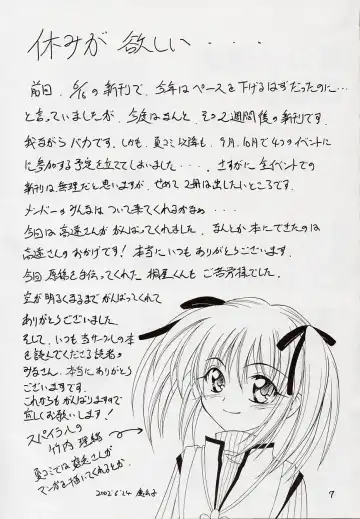 休みが 欲しい・・・
前回、6/16の新刊で、今年はペースを下げるはずだったのに…
と言っていましたが、今度はなんと、その2週間後の新刊です。
我ながらバカです。しかも、夏コミ以降も、9月、10月で4つのイベント
に参加する予定を立ててしまいました・・・。さすがに全イベントでの
新刊は無理だと思いますが、せめて2冊は出したいところです。
メンバーのみんなはついて来てくれるかなぁ・・・
今回は高遠さんががんばってくれました。なんとか本にできたのは
高遠さんのおかげです！本当にいつもありがとうございます。
今回原稿を手伝ってくれた桐星くんもご苦労様でした。
空が明るくなるまでがんばってくれて
ありがとうございました。
そして、いつも当サークルの本
を読んでくださる読者の
みなさん、本当にありがとう
ございますです。
これからもがんばりますので
宜しくお願いします！
スパイラルの
竹内 理緒
夏コミでは さんが
マンガを描いてくれるとか。
2002 6/24
7